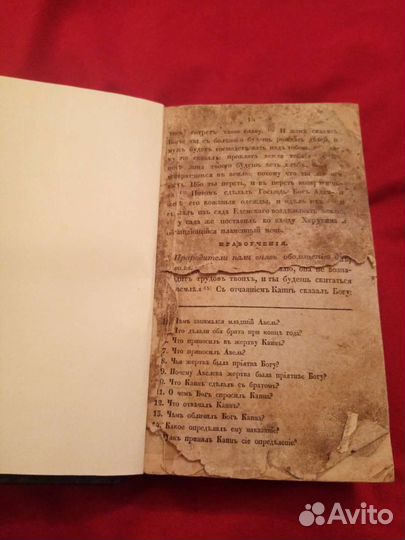 сотретъ твою главу. — И женѣ сказалъ:
ты съ болѣзнію будешь рождать дѣтей,
мужъ будетъ господствовать надъ тобою.
сказалъ: проклята земля
твоего будешь ѣсть хлѣбъ,
возвратишься въ землю, потому что ты
Ибо ты персть, и въ персть
Потомъ сдѣлалъ Господь Богъ
его кожаныя одежды, и одѣлъ ихъ
изъ сада Едемскаго воздѣлывать землю,
у сада же поставилъ ко входу Херувима
пламенный мечь.
НРАВОУЧЕНІЯ.
Прародители наши
она не
трудовъ твоихъ, и ты будешь скитаться
землѣ. Съ отчаяніемъ Каинъ сказалъ Богу:
Чѣмъ занимался младшій Авель?
Что дѣлали оба брата при концѣ года?
6. Что приносилъ въ жертву Каинъ?
7. Что приносилъ Авель?
8. Чья жертва была пріятна Богу?
9. Почему Авелева жертва была пріятнѣе Богу?
0. Что Каинъ сдѣлалъ съ братомъ?
11. О чемъ Богъ спросилъ Каина?
12. Что отвѣчалъ Каинъ?
13. Чѣмъ обличилъ Богъ Каина?
Какое опредѣлилъ ему наказаніе?
Какъ принялъ Каинъ сіе опредѣленіе?
Avito